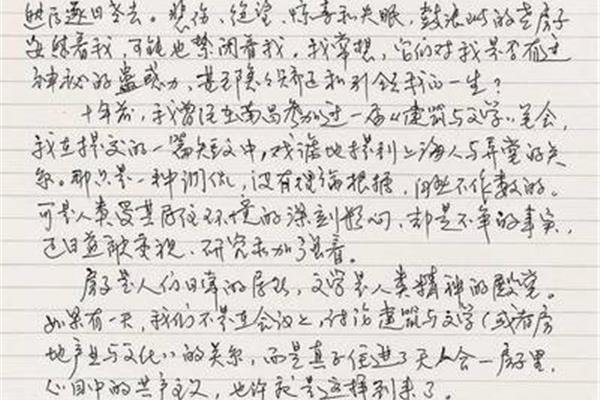 悲伤、绝望、惊喜和失眠,鼓浪屿的老房子
安慰着我,可能也禁闭着我。我常想,它们对我是否有过
神秘的蛊惑力,甚至隐约矫正和引领我的一生?
十年前,我曾经在南昌参加过一届《建筑与文学》笔会,
我在提交的一篇短文中,戏谑地提到上海人与弄堂的关
系。那只是一种调侃,没有理论根据,自然不作数的。
可是人类受其居住环境的深刻影响,却是不争的事实,
已日益被重视、研究和加了强着。
房子是人们日常的居所,文学是人类精神的殿堂。
如果有一天,我们不是在会议上,讨论建筑与文学(或者房
地产业与文化)的关系,而是真正住进了天人合一房子里,
心目中的共产主义,也许就是这样到来了。